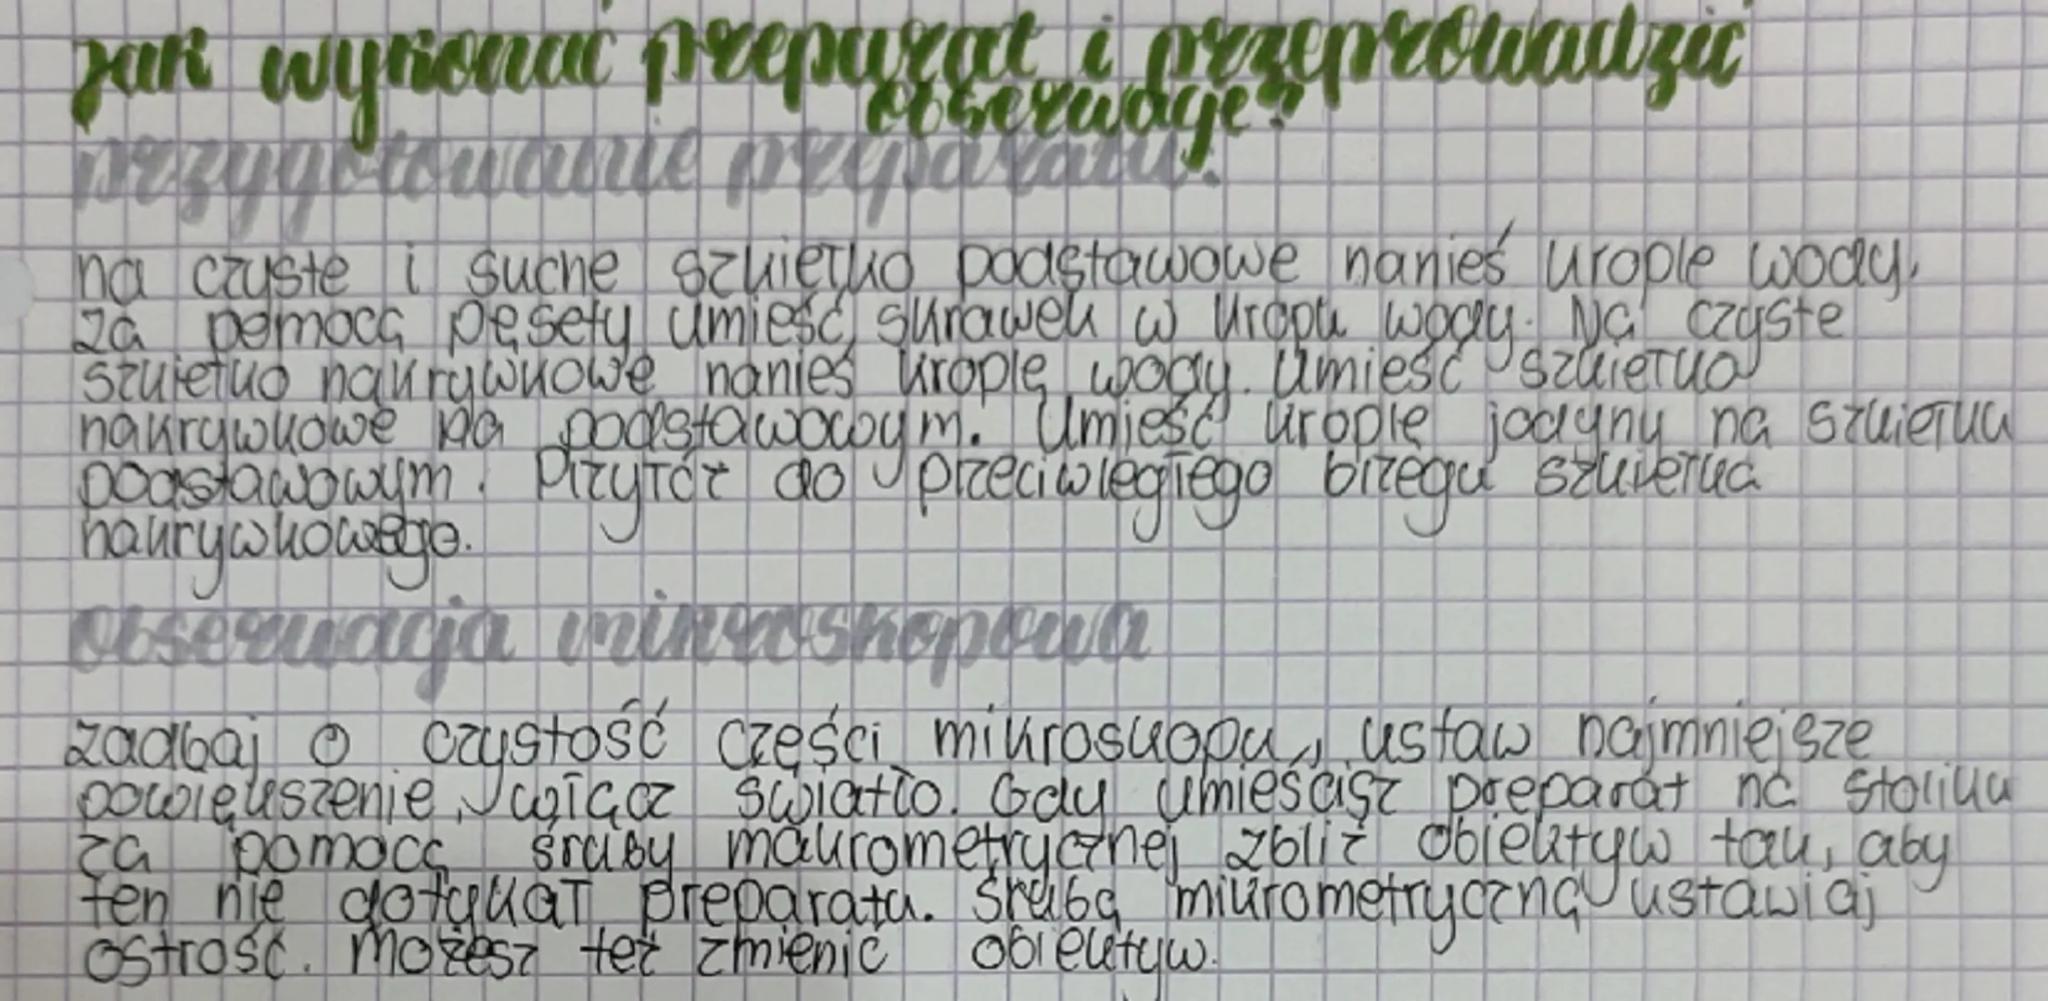 jak wykonać preparat i przeprowadzić
obserwację?
przygotowanie preparatu:
na czyste i suche szkiełko podstawowe nanieś kroplę wody.
za pomocą pęsety umieść skrawek w kropli wody. Na czyste
szkiełko nakrywkowe nanieś kroplę wody. Umieść szkiełko
nakrywkowe na podstawowym. Umieść kroplę jodyny na szkiełku
podstawowym. Przyłóż do przeciwległego brzegu szkiełka
nakrywkowego.
obserwacja mikroskopowa
zadbaj o czystość części mikroskopu, ustaw najmniejsze
powiększenie, włącz światło. Gdy umieścisz preparat na stoliku
za pomocą śruby makrometrycznej zbliż obiektyw tak, aby
ten nie dotykał preparatu. śrubą mikrometryczną ustawiaj
ostrość. możesz też zmienić obiektyw.